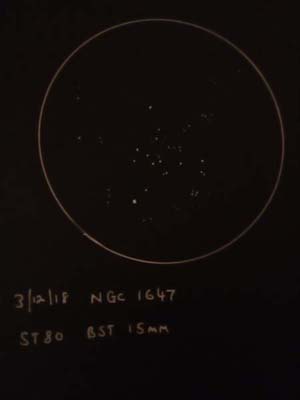 3/12/18 NGC 1647
ST80 BST 15mm